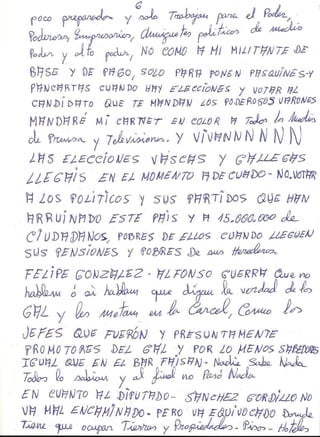 6
poco preparados y solo Trabajan para el Poder,
Poderosos Empresarios, Amiguetes politicos de medio
Poder y alto poder, NO COMO A MI MILITANTE DE
BASE Y DE PAGO, SOLO PARA PONER PASQUINES-Y
PANCARTAS CUANDO HAY ELECCIONES Y VOTAR AL
CANDIDATO QUE TE MANDAN LOS PODEROSOS VARONES
MANDARÉ MI CARNET EN COLOR A Todos los Medios
de Prensa y Televisiones. Y VIVANNNNNN
LAS ELECCIONES VASCAS Y GALLEGAS
LLEGAIS EN EL MOMENTO ADECUADO- NO.VOTAR
A LOS POLITICOS Y SUS PARTIDOS QUE HAN
ARRUINADO ESTE PAIS Y A 15.000.000 de
CIUDADANOS, POBRES DE ELLOS CUANDO LLEGUEN
SUS PENSIONES Y POBRES De sus Herederos
FELIPE GONZALEZ - ALFONSO GUERRA Que no
hablem ó si hablam que digan la verdad de los
GAL y les metan en la Carcel, Como los
JEFES QUE FUERÓN Y PRESUNTAMENTE
PROMOTORES DEL GAL Y POR LO MENOS SABEDORES
IGUAL QUE EN EL BAR FAISAN- Nadie Sabe Nada
Todos lo sabian y al final no Pasó Nada
EN CUANTO AL DIPUTADO- SANCHEZ GORDILLO NO
VA MAL ENCAMINADO- PERO VA EQUIVOCADO Donde
Tiene que ocupar Tierras y Propiedades- Pisos- Hoteles